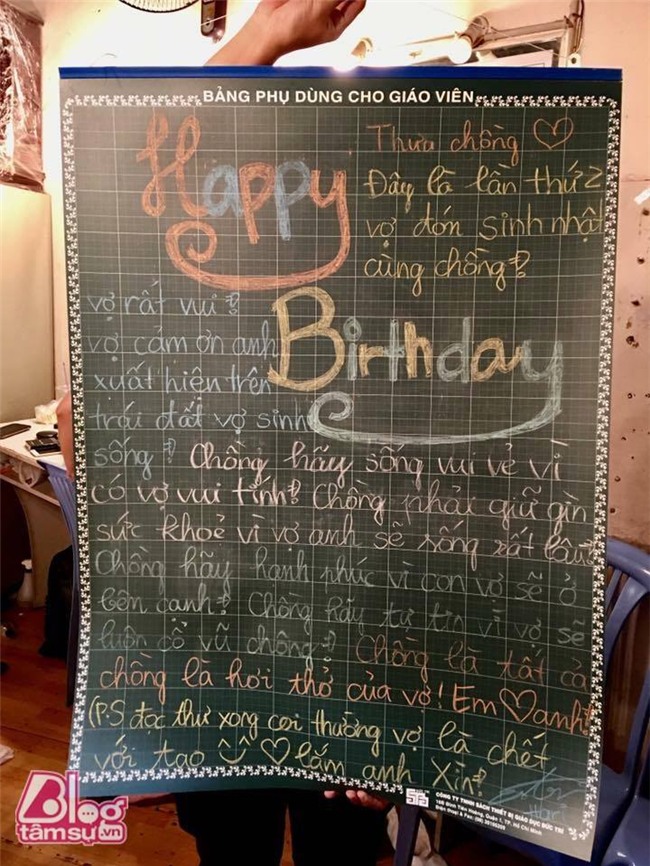 BẢNG PHỤ DÙNG CHO GIÁO VIÊN
Happy
Thưa chồng ♡
Đây là lần thứ 2
vợ đón sinh nhật
cùng chồng!
Birthday
vợ rất vui!
vợ cảm ơn anh
xuất hiện trên
trái đất vợ sinh
sống! Chồng hãy sống vui vẻ vì
có vợ vui tính! Chồng phải giữ gìn
sức khoẻ vì vợ anh sẽ sống rất lâu!
Chồng hãy hạnh phúc vì con vợ sẽ ở
bên cạnh! Chồng hãy tự tin vì vợ sẽ
luôn cổ vũ chồng! Chồng là tất cả
chồng là hơi thở của vợ! Em ♡ anh!
(P.S đọc thư xong coi thường vợ là chết
với tao ♡ lắm anh Xìn!
Hari
CÔNG TY TNHH SÁCH THIẾT BỊ GIÁO DỤC ĐỨC TRÍ
Đinh Tiên Hoàng, Quận 1, TP. Hồ Chí Minh
Điện thoại & Fax: (08)
Blog
tâmsự.vn